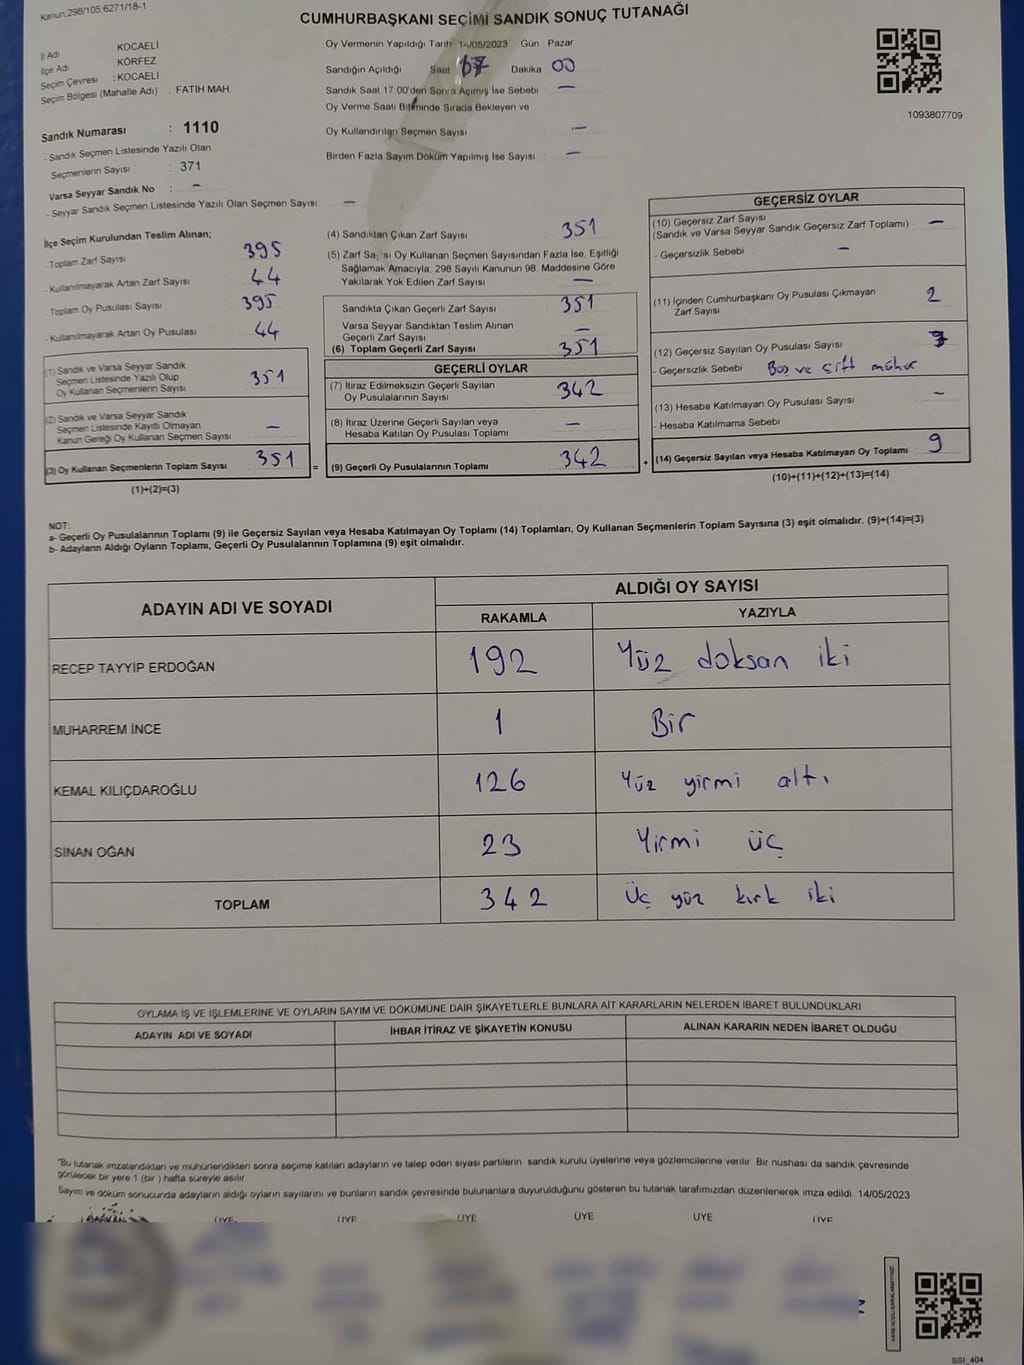 Kanun:298/105:6271/18-1
CUMHURBAŞKANI SEÇİMİ SANDIK SONUÇ TUTANAĞI
İl Adı KOCAELİ
İlçe Adı KÖRFEZ
Seçim Çevresi : KOCAELİ
Seçim Bölgesi (Mahalle Adı) : FATİH MAH.
Oy Vermenin Yapıldığı Tarih 14/05/2023 Gün Pazar
Sandığın Açıldığı Saat 17 Dakika 00
Sandık Saat 17.00'den Sonra Açımış İse Sebebi —
Oy Verme Saati Bitiminde Sırada Bekleyen ve
Oy Kullandırılan Seçmen Sayısı —
Birden Fazla Sayım Döküm Yapılmış İse Sayısı —
1093807709
Sandık Numarası : 1110
- Sandık Seçmen Listesinde Yazılı Olan
Seçmenlerin Sayısı : 371
Varsa Seyyar Sandık No : —
- Seyyar Sandık Seçmen Listesinde Yazılı Olan Seçmen Sayısı: —
İlçe Seçim Kurulundan Teslim Alınan;
- Toplam Zarf Sayısı 395
- Kullanılmayarak Artan Zarf Sayısı 44
- Toplam Oy Pusulası Sayısı 395
- Kullanılmayarak Artan Oy Pusulası 44
(1) Sandık ve Varsa Seyyar Sandık
Seçmen Listesinde Yazılı Olup
Oy Kullanan Seçmenlerin Sayısı 351
(2) Sandık ve Varsa Seyyar Sandık
Seçmen Listesinde Kayıtlı Olmayan
Kanun Gereği Oy Kullanan Seçmen Sayısı —
(3) Oy Kullanan Seçmenlerin Toplam Sayısı 351 =
(1)+(2)=(3)
(4) Sandıktan Çıkan Zarf Sayısı 351
(5) Zarf Sayısı Oy Kullanan Seçmen Sayısından Fazla İse, Eşitliği
Sağlamak Amacıyla, 298 Sayılı Kanunun 98. Maddesine Göre
Yakılarak Yok Edilen Zarf Sayısı —
Sandıkta Çıkan Geçerli Zarf Sayısı 351
Varsa Seyyar Sandıktan Teslim Alınan
Geçerli Zarf Sayısı —
(6) Toplam Geçerli Zarf Sayısı 351
GEÇERLİ OYLAR
(7) İtiraz Edilmeksizin Geçerli Sayılan
Oy Pusulalarının Sayısı 342
(8) İtiraz Üzerine Geçerli Sayılan veya
Hesaba Katılan Oy Pusulası Toplamı —
(9) Geçerli Oy Pusulalarının Toplamı 342 +
GEÇERSİZ OYLAR
(10) Geçersiz Zarf Sayısı
(Sandık ve Varsa Seyyar Sandık Geçersiz Zarf Toplamı) —
- Geçersizlik Sebebi —
(11) İçinden Cumhurbaşkanı Oy Pusulası Çıkmayan
Zarf Sayısı 2
(12) Geçersiz Sayılan Oy Pusulası Sayısı
- Geçersizlik Sebebi Boş ve çift mühür
(13) Hesaba Katılmayan Oy Pusulası Sayısı —
- Hesaba Katılmama Sebebi
(14) Geçersiz Sayılan veya Hesaba Katılmayan Oy Toplamı 9
(10)+(11)+(12)+(13)=(14)
NOT:
a- Geçerli Oy Pusulalarının Toplamı (9) ile Geçersiz Sayılan veya Hesaba Katılmayan Oy Toplamı (14) Toplamları, Oy Kullanan Seçmenlerin Toplam Sayısına (3) eşit olmalıdır. (9)+(14)=(3)
b- Adayların Aldığı Oyların Toplamı, Geçerli Oy Pusulalarının Toplamına (9) eşit olmalıdır.
ADAYIN ADI VE SOYADI
ALDIĞI OY SAYISI
RAKAMLA YAZIYLA
RECEP TAYYİP ERDOĞAN 192 Yüz doksan iki
MUHARREM İNCE 1 Bir
KEMAL KILIÇDAROĞLU 126 Yüz yirmi altı
SİNAN OĞAN 23 Yirmi üç
TOPLAM 342 Üç yüz kırk iki
OYLAMA İŞ VE İŞLEMLERİNE VE OYLARIN SAYIM VE DÖKÜMÜNE DAİR ŞİKAYETLERLE BUNLARA AİT KARARLARIN NELERDEN İBARET BULUNDUKLARI
ADAYIN ADI VE SOYADI İHBAR İTİRAZ VE ŞİKAYETİN KONUSU ALINAN KARARIN NEDEN İBARET OLDUĞU
"Bu tutanak imzalandıktan ve mühürlendikten sonra seçime katılan adayların ve talep eden siyasi partilerin sandık kurulu üyelerine veya gözlemcilerine verilir. Bir nüshası da sandık çevresinde
görülecek bir yere 1 (bir) hafta süreyle asılır.
Sayım ve döküm sonucunda adayların aldığı oyların sayılarını ve bunların sandık çevresinde bulunanlara duyurulduğunu gösteren bu tutanak tarafımızdan düzenlenerek imza edildi. 14/05/2023
BAŞKAN ÜYE ÜYE ÜYE ÜYE ÜYE ÜYE
SSI_404